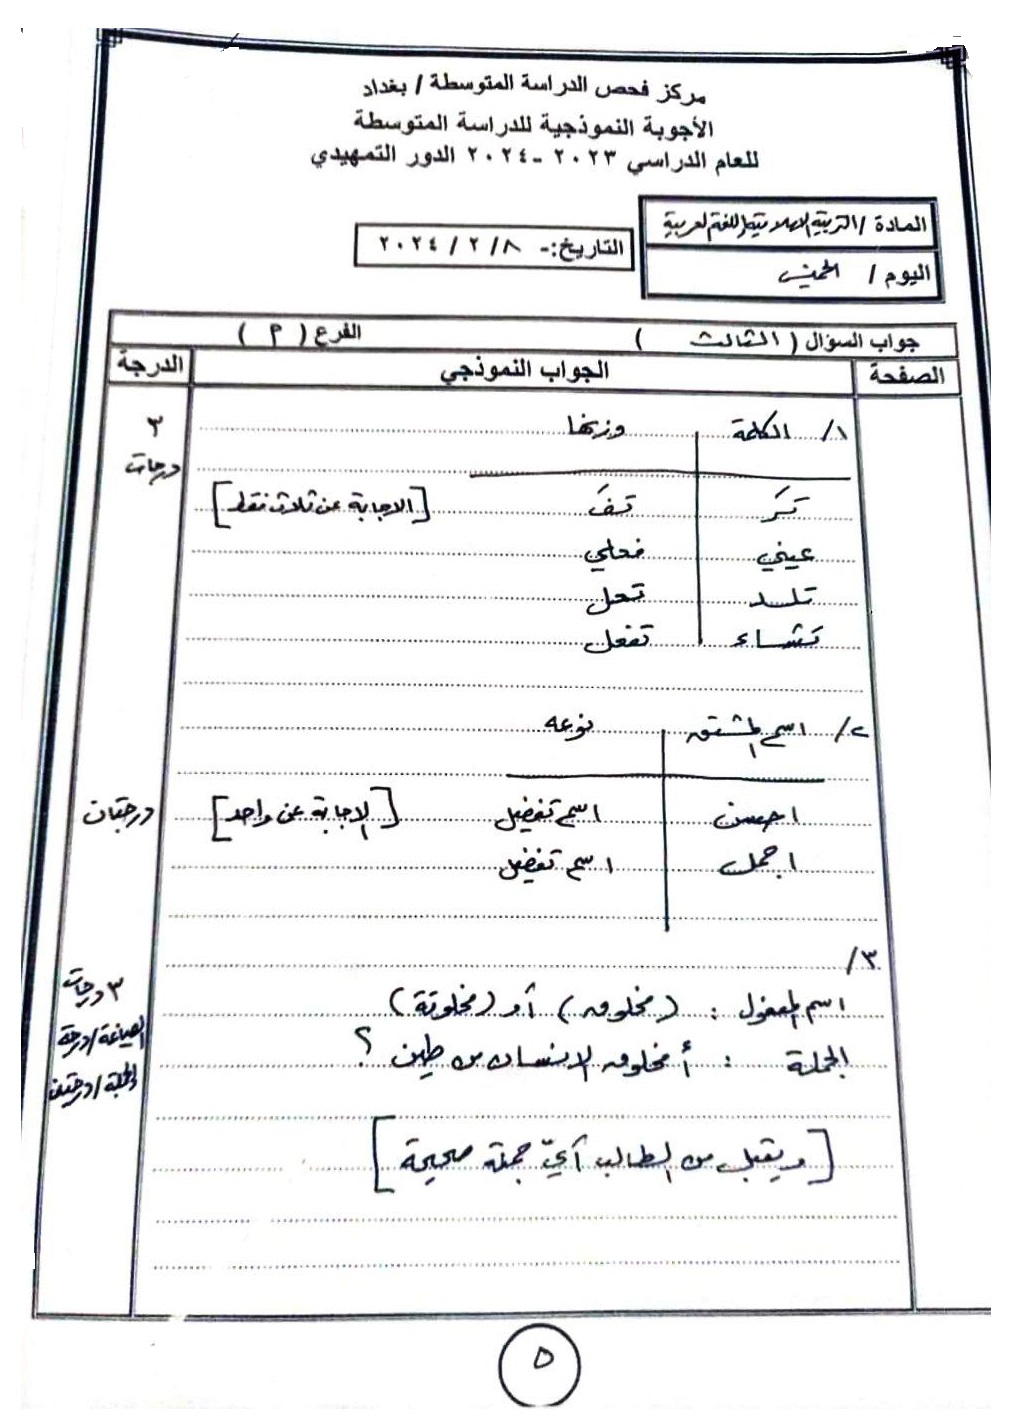 مركز فحص الدراسة المتوسطة / بغداد
الأجوبة النموذجية للدراسة المتوسطة
للعام الدراسي ٢٠٢٣ -٢٠٢٤ الدور التمهيدي
المادة / التربية الاسلامية واللغة العربية
التاريخ:- ٨ / ٢ / ٢٠٢٤
اليوم / الخميس
جواب السؤال ( الثالث ) الفرع ( م )
الصفحة الجواب النموذجي الدرجة
١/ الكلمة وزنها ٣
درجات
تَرَ تَفَ [الاجابة عن ثلاث فقط]
عيني فعلي
تلد تعل
تشاء تفعل
٢/ اسم المشتق نوعه
احسن اسم تفضيل [الاجابة عن واحد] درجتان
اجمل اسم تفضيل
٣/
اسم المفعول : (مخلوق) أو (مخلوقة) ٣ درجات
الصياغة/درجة
الجملة : أمخلوق الانسان من طين ؟
والجملة/درجتين
[ويقبل من الطالب أيّ جملة صحيحة]
٥